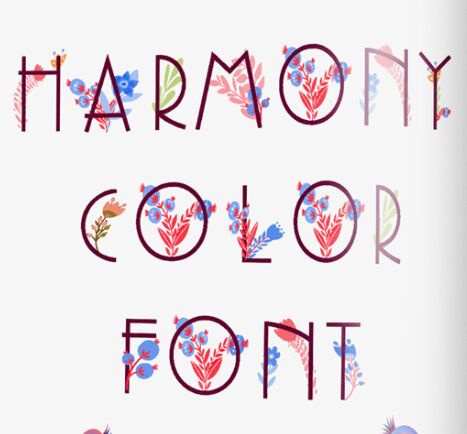 HARMONY
COLOR
FONT